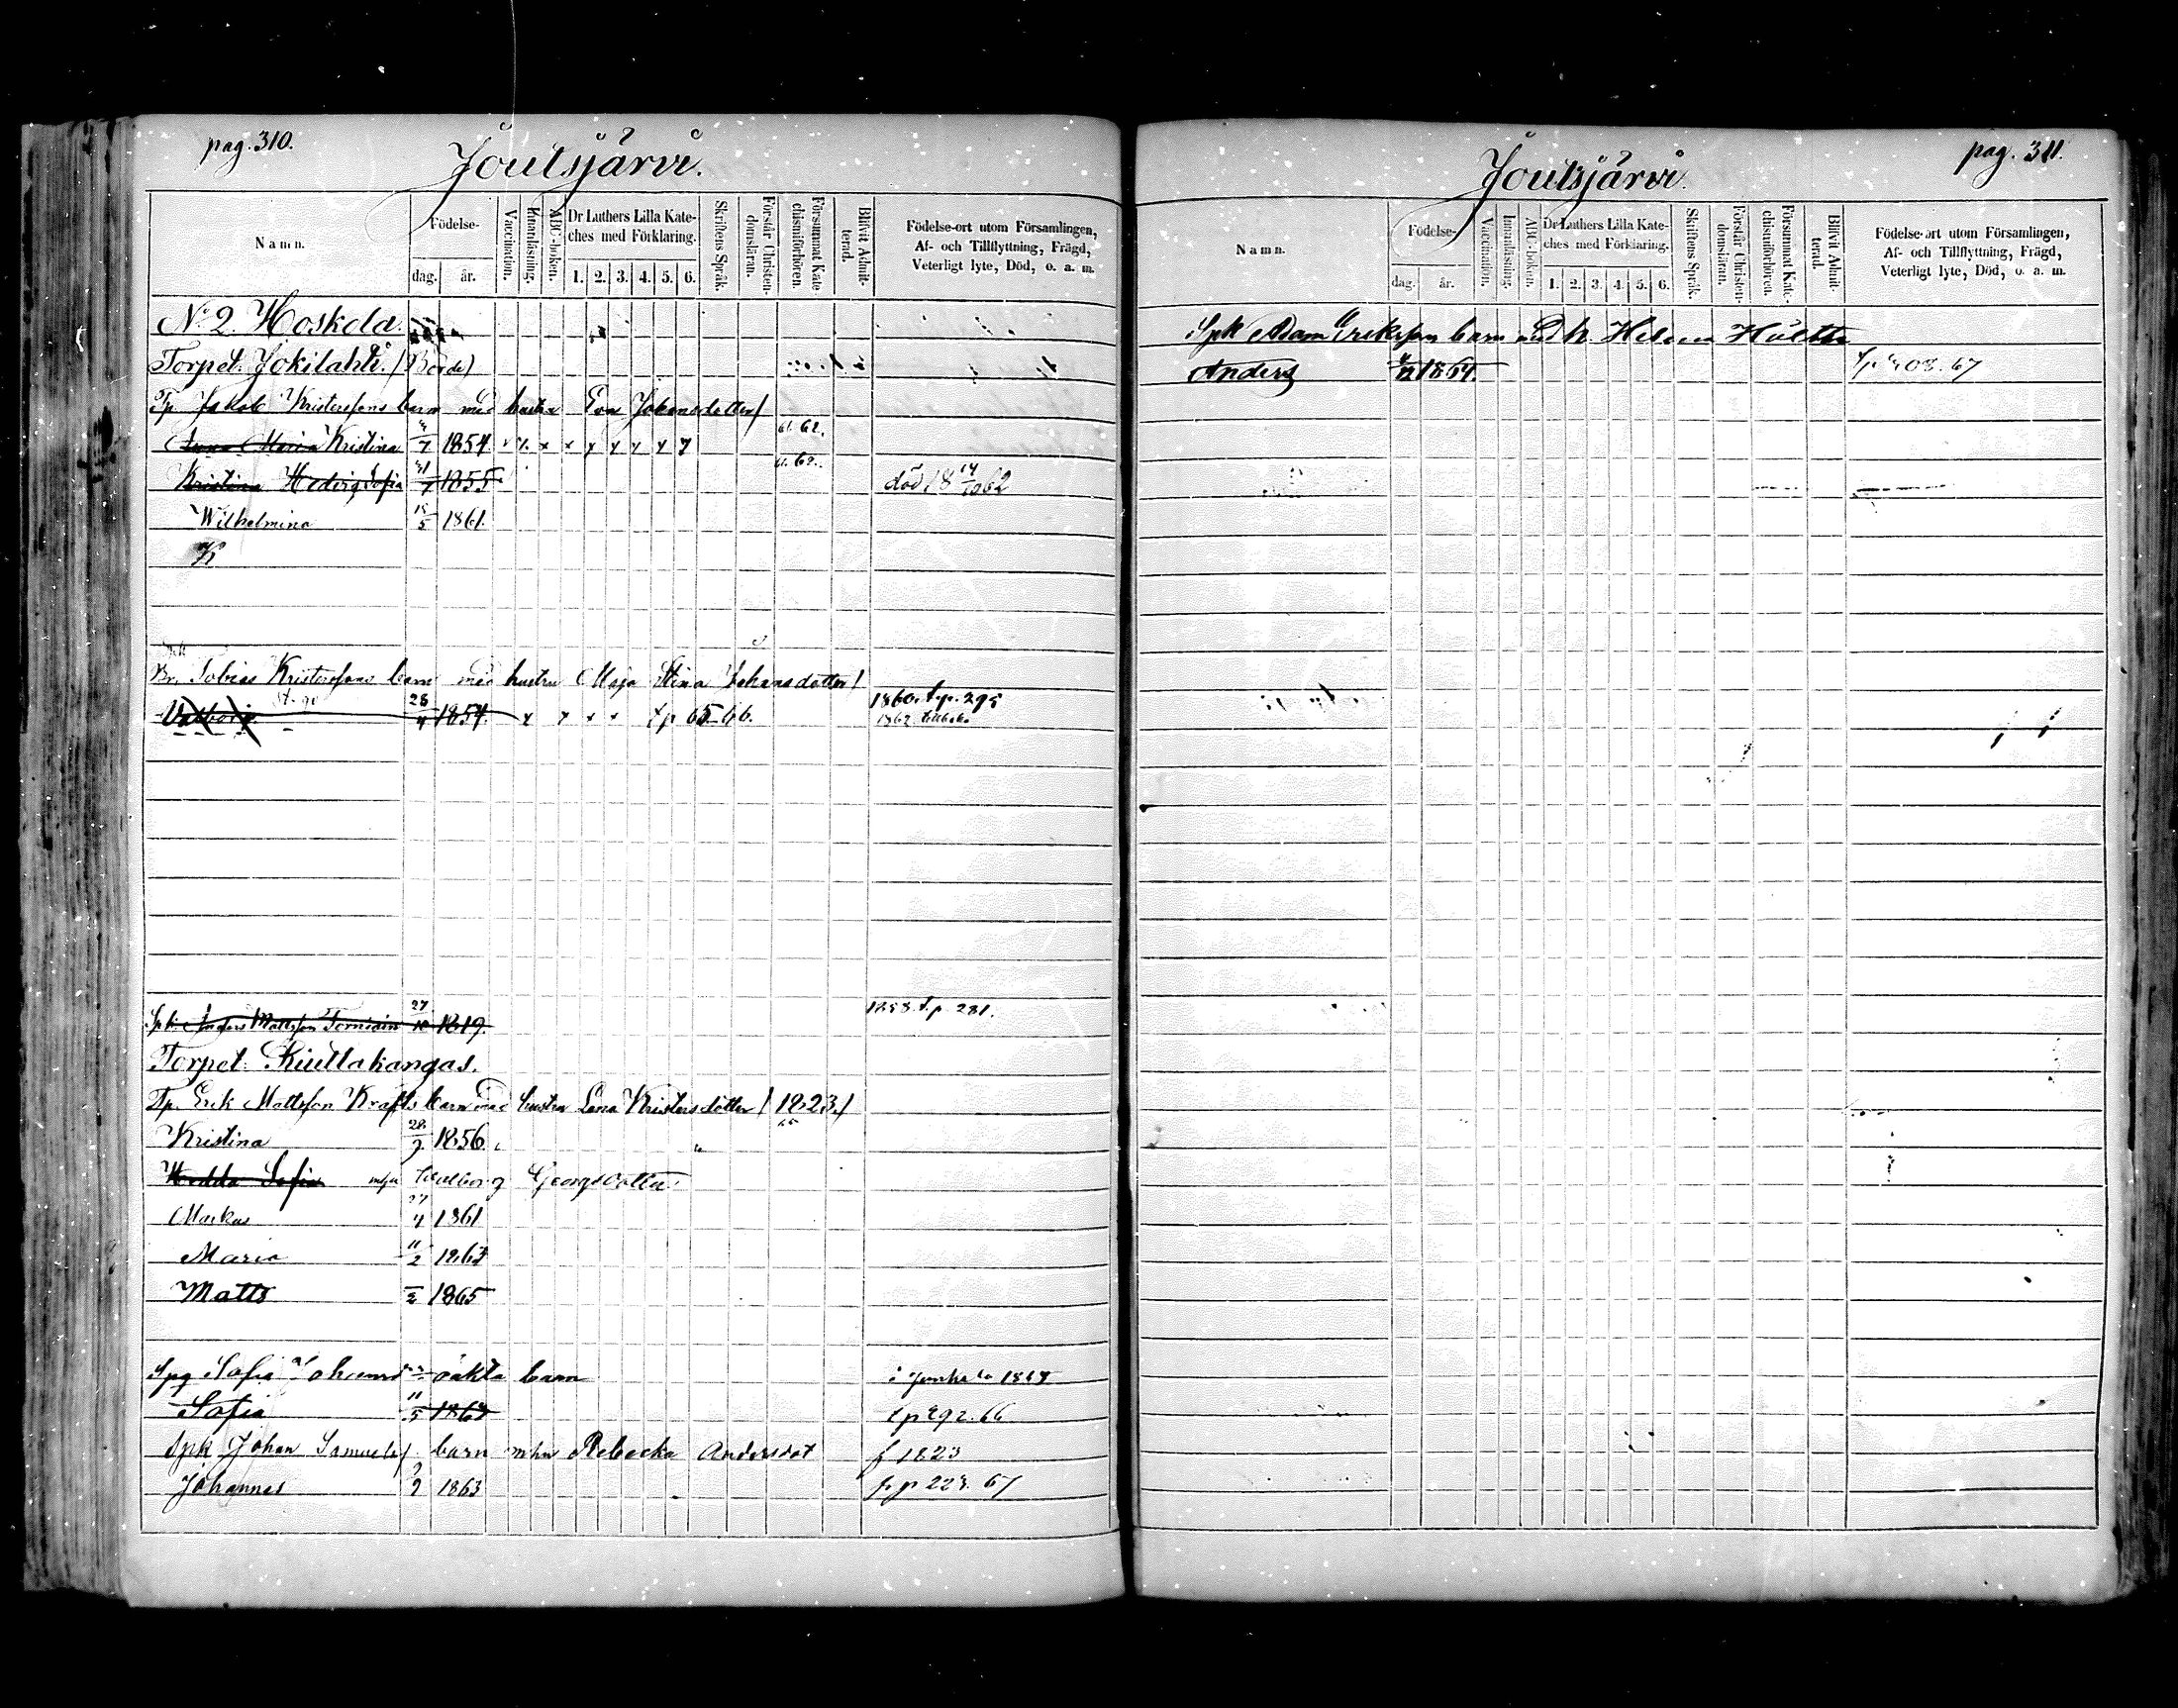 pag. 310.
Joutsjärvi.
Namn.
Födelse-
dag.
år.
Vaccination.
Innanläsning.
ABC-boken.
Dr Luthers Lilla Kate-
ches med Förklaring.
1. 2. 3. 4. 5. 6.
Skriftens Språk.
Förstår Christen-
domsläran.
Försummat Kate
chismiförhören.
Blifvit Admit-
terad.
Födelse-ort utom Församlingen,
Af- och Tillflyttning, Frägd,
Veterligt lyte, Död, o. a. m.
No 2 Hoskola.
Torpet Jokilahti. (Börde)
Tp. Jakob Kristerssons barn med hustru Eva Johansdotter/
Anna Maria Kristina 7 1854 x x x x x x x 61. 62.
Kristina Hedvig Sofia 31/7 1855 61. 62. död 18 14/10 62
Wilhelmina 18/5 1861.
K
Br. Tobias Kristerssons barn med hustru Maja Stina Johansdotter/
Valborg 28/4 1854. x x x x t p 65-66. 1860. t. p. 295
1862 tillbaka
Spk. Anders Mattsson Torniain 27/10 1819. 1858. t. p. 281.
Torpet Kiuttakangas.
Tp. Erik Mattsson Krafts barn med hustru Lena Kristersdotter / 1823/
Kristina 28/9 1856.
Hedda Sofia mhu Walborg Georgsdotter
Markus 27/4 1861
Maria 11/2 1863
Matts 1865
Spg Sofia oäkta barn i Junkala 1868
Sofia 11/5 1863 t p 292. 66
Spk Johan Samuels/ barn mhu Rebecka Andersdot f 1823
Johannes 9/9 1863 fr p 228. 67
pag. 311.
Joutsjärvi.
Namn.
Födelse-
dag.
år.
Vaccination.
Innanläsning.
ABC-boken.
Dr Luthers Lilla Kate-
ches med Förklaring.
1. 2. 3. 4. 5. 6.
Skriftens Språk.
Förstår Christen-
domsläran.
Försummat Kate-
chismiförhören.
Blifvit Admit-
terad.
Födelse-ort utom Församlingen,
Af- och Tillflyttning, Frägd,
Veterligt lyte, Död, o. a. m.
Spk Adam Eriksson barn med h. Helena
Anders 4/12 1864. 67